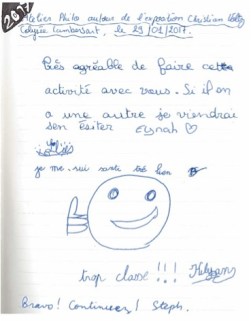 2017
Atelier Philo autour de l'exposition Christian
Lambersart, le 29/01/2017.
très agréable de faire cette
activité avec vous. Si il on
a une autre je viendrai
sen ésiter
je me sui santé très bien
trop classe!!!
Bravo! Continuez! Steph.